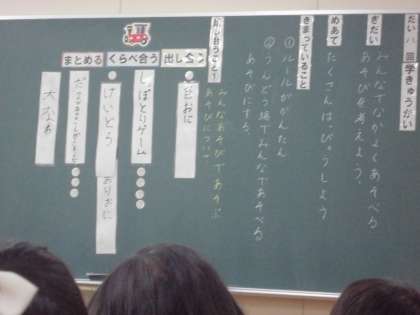 だい八回学きゅうかい
ぎだい
みんなでなかよくあそべる
あそびを考えよう。
めあて
たくさんはっぴょうしよう
きまっていること
①ルールがかんたん
②うんどう場でみんなであそべる
あそびにする。
話し合うこと①
みんなあそびであそぶ
あそびについて
出し合う
くらべ合う
まとめる
しっぽとりゲーム
けいどろ
おりおに